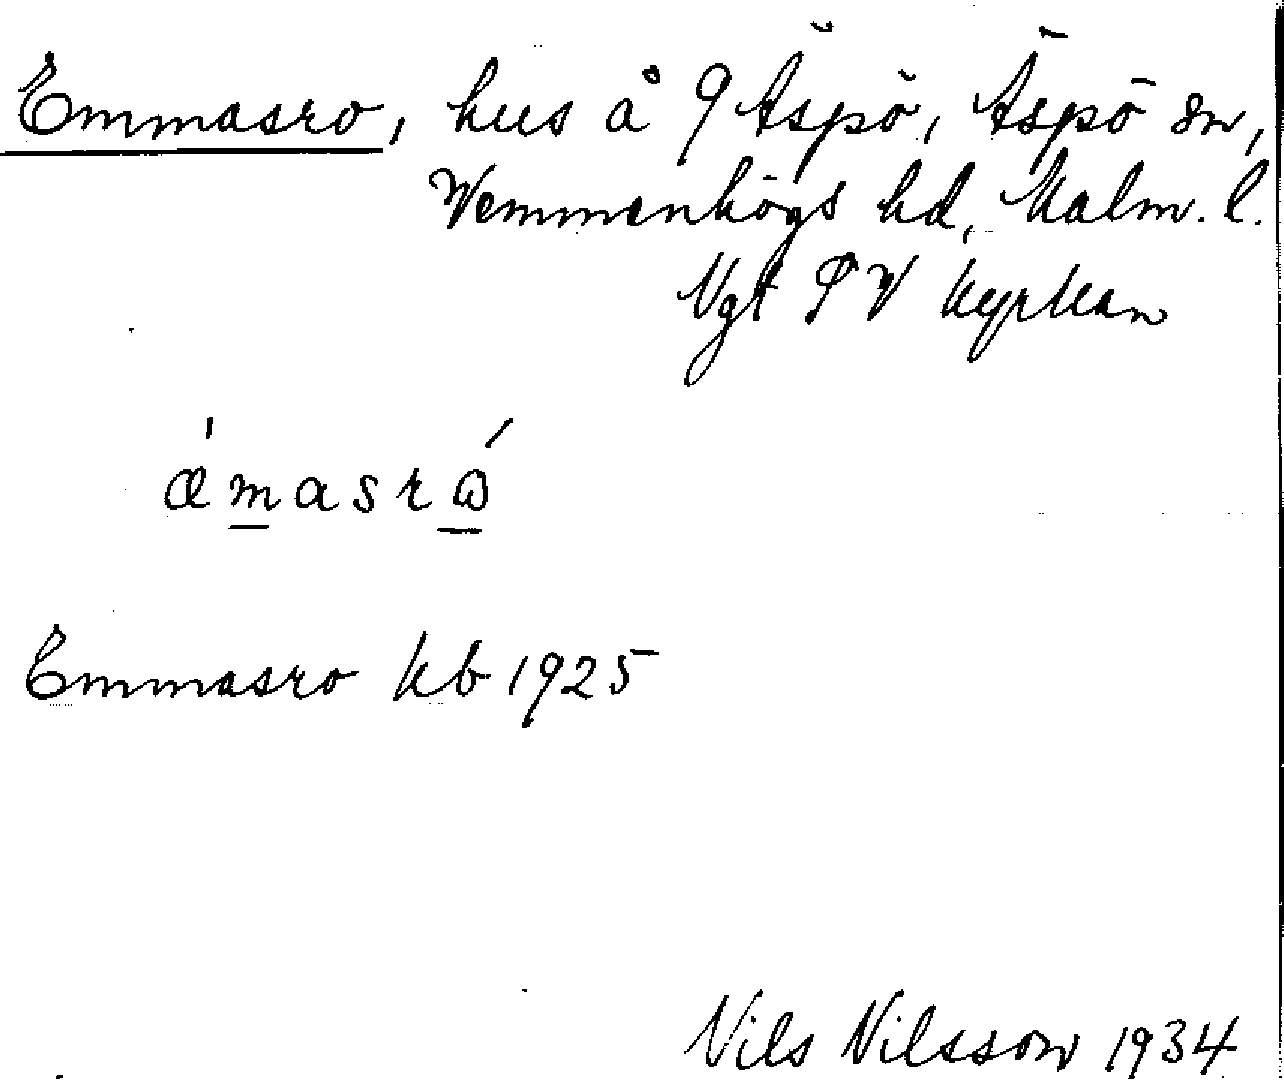 Emmasro, hus å 9 Äspö, Äspö sn,
Vemmenhögs hd, Malm. l.
Vgt S V kyrkan
æ̍masró
Emmasro kb 1925
Nils Nilsson 1934